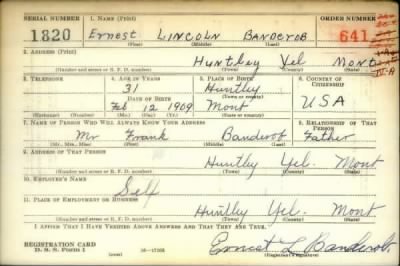 SERIAL NUMBER 1. NAME (Print) ORDER NUMBER
1820 Ernest LINCOLN BANDEROB 641
(First) (Middle) (Last)
2. ADDRESS (Print)
HUNTLEY Yel MONT
(Number and street or R. F. D. number) (Town) (County) (State)
3. TELEPHONE 4. AGE IN YEARS 5. PLACE OF BIRTH 6. COUNTRY OF CITIZENSHIP
31 Huntley
DATE OF BIRTH (Town or county)
Feb 12 1909 Mont USA
(Exchange) (Number) (Mo.) (Day) (Yr.) (State or country)
7. NAME OF PERSON WHO WILL ALWAYS KNOW YOUR ADDRESS 8. RELATIONSHIP OF THAT PERSON
Mr Frank Banderob Father
(Mr., Mrs., Miss) (First) (Middle) (Last)
9. ADDRESS OF THAT PERSON
Huntley Yel. Mont
(Number and street or R. F. D. number) (Town) (County) (State)
10. EMPLOYER'S NAME
Self
11. PLACE OF EMPLOYMENT OR BUSINESS
Huntley Yel. Mont
(Number and street or R. F. D. number) (Town) (County) (State)
I AFFIRM THAT I HAVE VERIFIED ABOVE ANSWERS AND THAT THEY ARE TRUE.
REGISTRATION CARD
D. S. S. Form 1 (over) Ernest L Banderob.
(Registrant's signature)